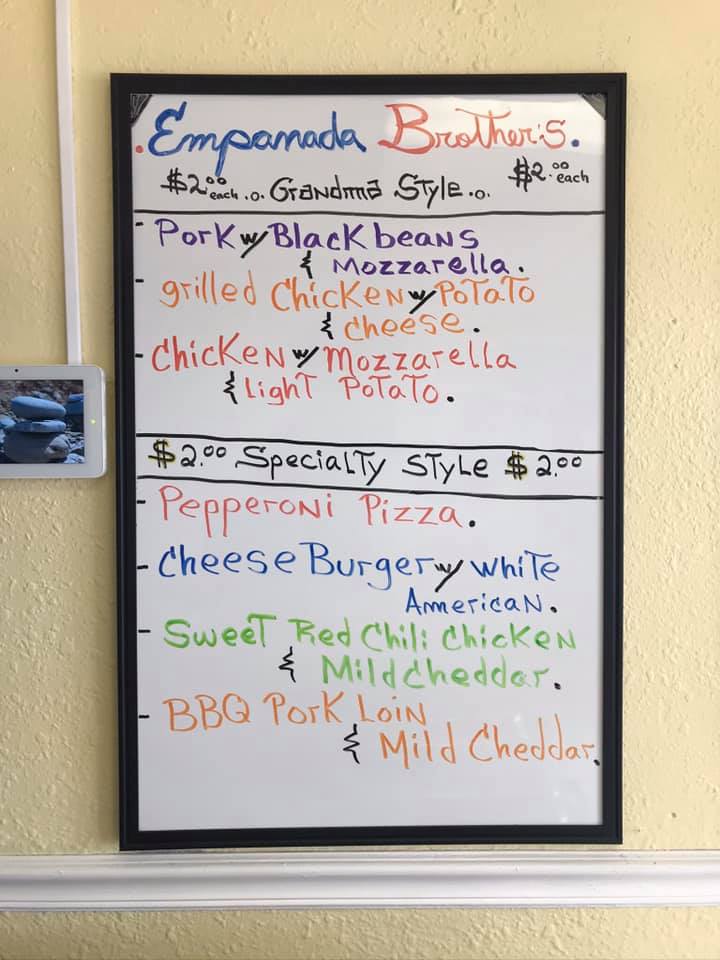 . Empanada Brother's.
$2.00 each .o. Grandma Style .o. $2.00 each
- Pork w/ Black beans
& Mozzarella.
- grilled Chicken w/ Potato
& cheese.
- Chicken w/ Mozzarella
& Light Potato.
$2.00 Specialty Style $2.00
- Pepperoni Pizza.
- Cheese Burger w/ White
American.
- Sweet Red Chili Chicken
& Mild Cheddar.
- BBQ Pork Loin
& Mild Cheddar.